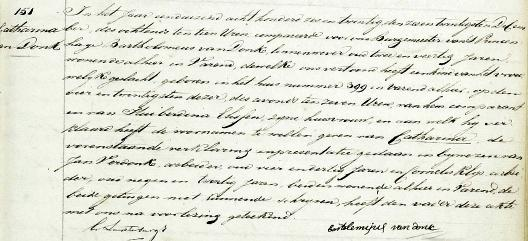 151
Catharina
van Donk
In het jaar een duizend acht honderd zeven en twintig den zeven en twintigsten Decem
ber, des ochtends ten tien Uren, compareerde voor ons Burgemeester van Princen
hage Bartholomeus van Donk, linnenwever oud twee en veertig Jaren
wonende alhier in Varend, dewelke ons vertoond heeft een kind van het vrou
welijk geslacht, geboren in het huis nummer 399 in Varend alhier, op den
zes en twintigsten dezer, des avonds ten zeven Uren, van hem comparant
en van Huiberdina Elzen, zyne huisvrouw, en aan welk hij ver
klaard heeft de voornamen te willen geven van Catharina, de
vorenstaande verklaring en presentatie gedaan in bijwezen van
Jan Verdonk, arbeider, oud vier en dertig Jaren en Cornelis arbei
der, oud negen en veertig Jaren, beiden wonende alhier in Varend, de
beide getuigen niet kunnende schryven, heeft den vader deze akte
met ons na voorlezing geteekend.
Bartelemijus van donk